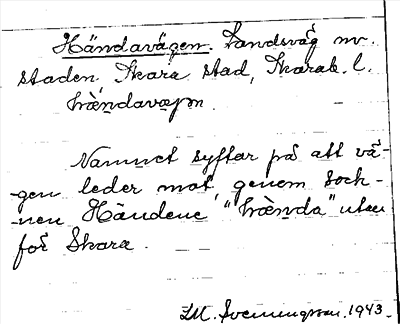 Händavägen. Landsväg nv.
staden Skara stad, Skarab. l.
hæ̀ndavægən.
Namnet syftar på att vä-
gen leder mot, genom sock-
nen Händene, "hæ̀nda" utan
för Skara.
I.M. Svenningsson. 1943.